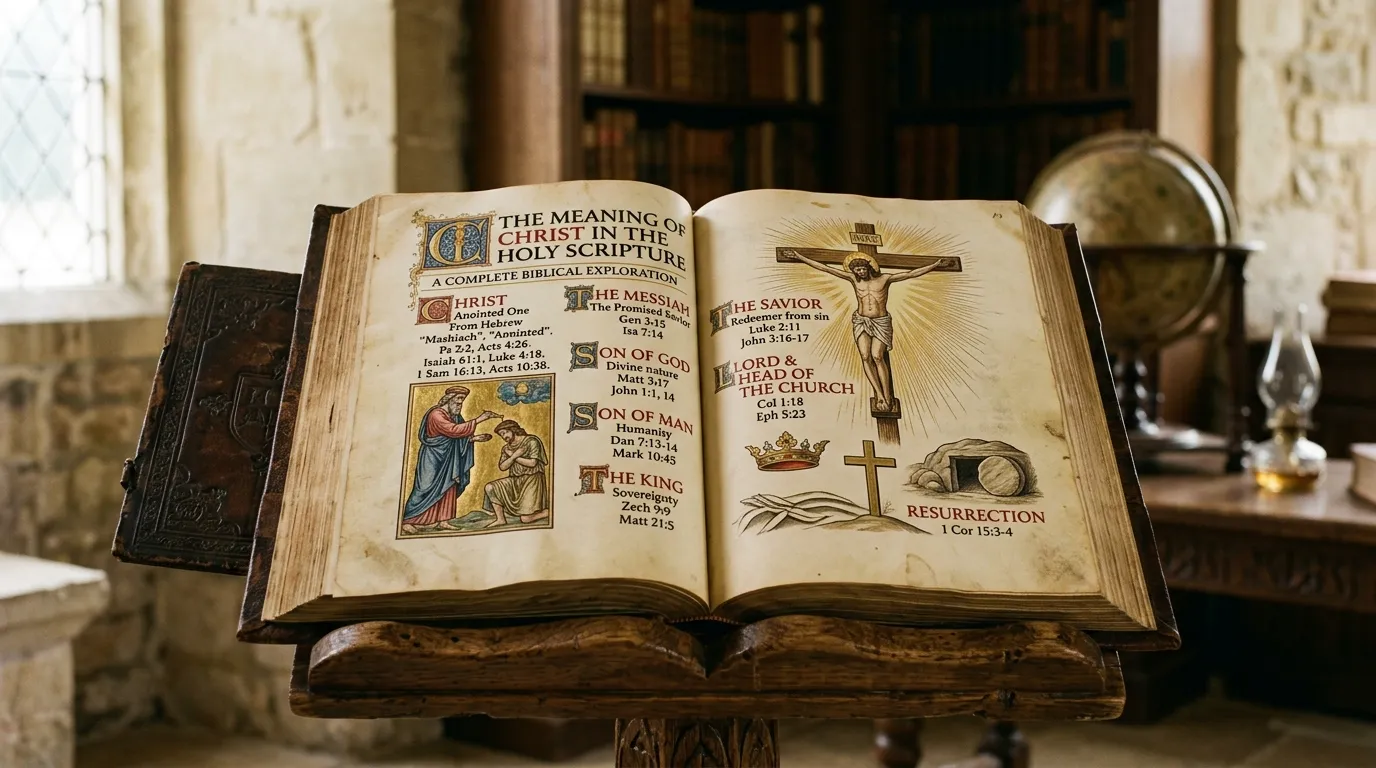 THE MEANING OF
CHRIST IN THE
HOLY SCRIPTURE
A COMPLETE BIBLICAL EXPLORATION
CHRIST
Anointed One
From Hebrew
"Mashiach", "Anninted".
Pa 2:2, Acts 4:26.
Isaiah 61:1, Luke 4:18.
1 Sam 16:13, Acts 10:38.
THE MESSIAH
The Promised Savlor
Gen 3:15
Isa 7:14
SON OF GOD
Divine nature
Matt 3,17
John 1:1, 14
SON OF MAN
Humanisy
Dan 7:13-14
Mark 10:45
THE KING
Sovereignty
Zech 9:9
Matt 21:5
THE SAVIOR
Redeemer from sin
Luke 2:11
John 3:16-17
LORD &
HEAD OF
THE CHURCH
Col 1:18
Eph 5:23
RESURRECTION
1 Cor 15:3-4